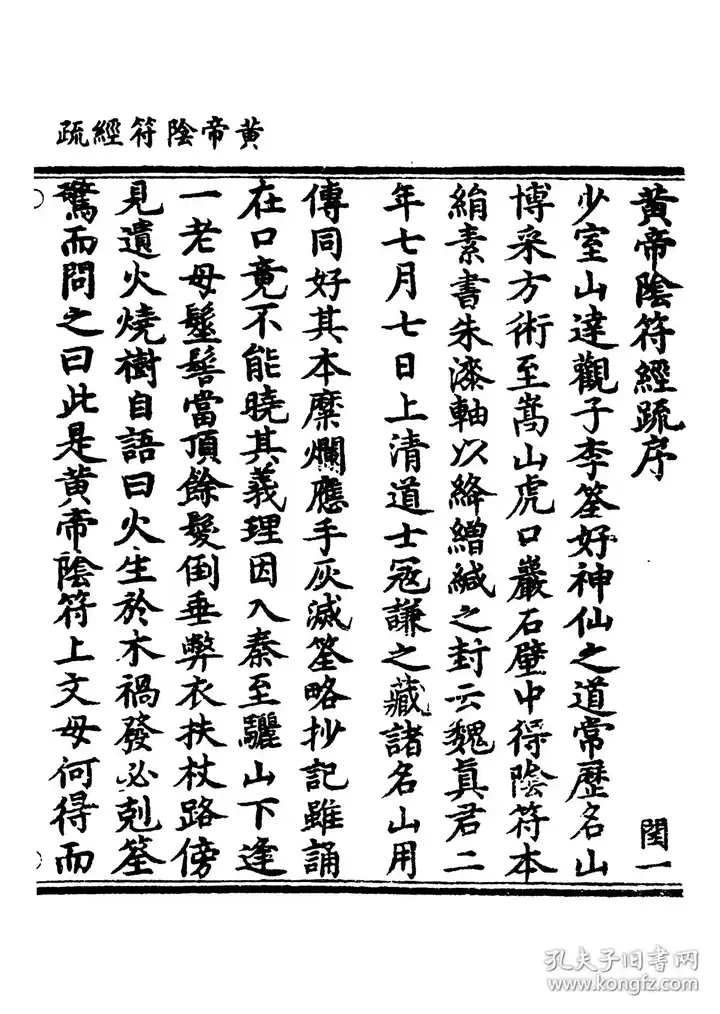 黄帝陰符經疏
黄帝陰符經疏序
閏一
少室山達觀子李筌好神仙之道常歷名山
博采方術至嵩山虎口巖石壁中得陰符本
絹素書朱漆軸以絳繒緘之封云魏眞君二
年七月七日上清道士冦謙之藏諸名山用
傳同好其本糜爛應手灰滅筌略抄記雖誦
在口竟不能曉其義理因入秦至驪山下逢
一老母鬉髻當頂餘髮倒垂弊衣扶杖路傍
見遺火燒樹自語曰火生於木禍發必剋筌
驚而問之曰此是黄帝陰符上文母何得而
孔夫子旧书网
www.kongfz.com